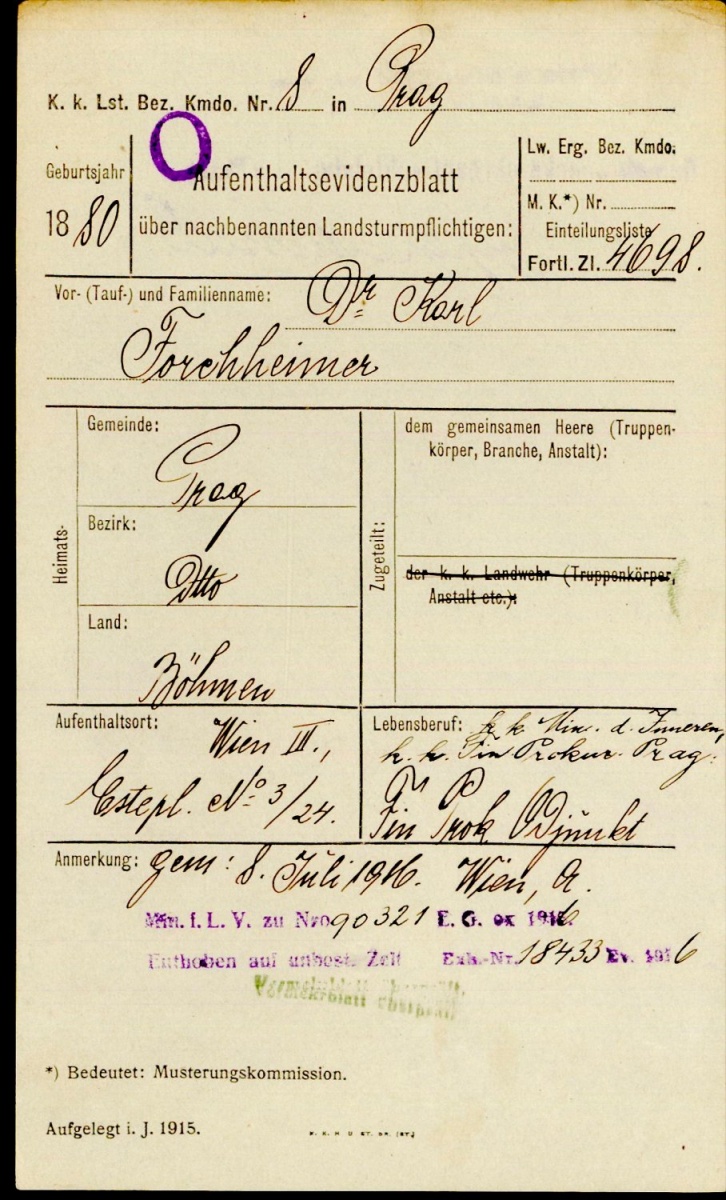 K. k. Lst. Bez. Kmdo. Nr. 8 in Prag
O
Geburtsjahr
1880
Aufenthaltsevidenzblatt
über nachbenannten Landsturmpflichtigen:
Lw. Erg. Bez. Kmdo.
M. K.*) Nr.
Einteilungsliste
Fortl. Zl. 4698.
Vor- (Tauf-) und Familienname: Dr Karl
Forchheimer
Heimats-
Gemeinde:
Prag
Bezirk:
Dtto
Land:
Böhmen
Zugeteilt:
dem gemeinsamen Heere (Truppen-
körper, Branche, Anstalt):
der k. k. Landwehr (Truppenkörper,
Anstalt etc.):
Aufenthaltsort: Wien III.,
Estepl. No 3/24.
Lebensberuf: k k Min. d. Inneren,
k. k. Fin Prokur. Prag.
Fin Prok Adjunkt
Anmerkung: gem: 8. Juli 1916. Wien, A.
Min. f. L. V. zu Nro 90321 E. G. ex 1916.
Enthoben auf unbest. Zeit Exh.-Nr. 18433 Ev. 1916
Vormerkblatt überprüft
*) Bedeutet: Musterungskommission.
Aufgelegt i. J. 1915.